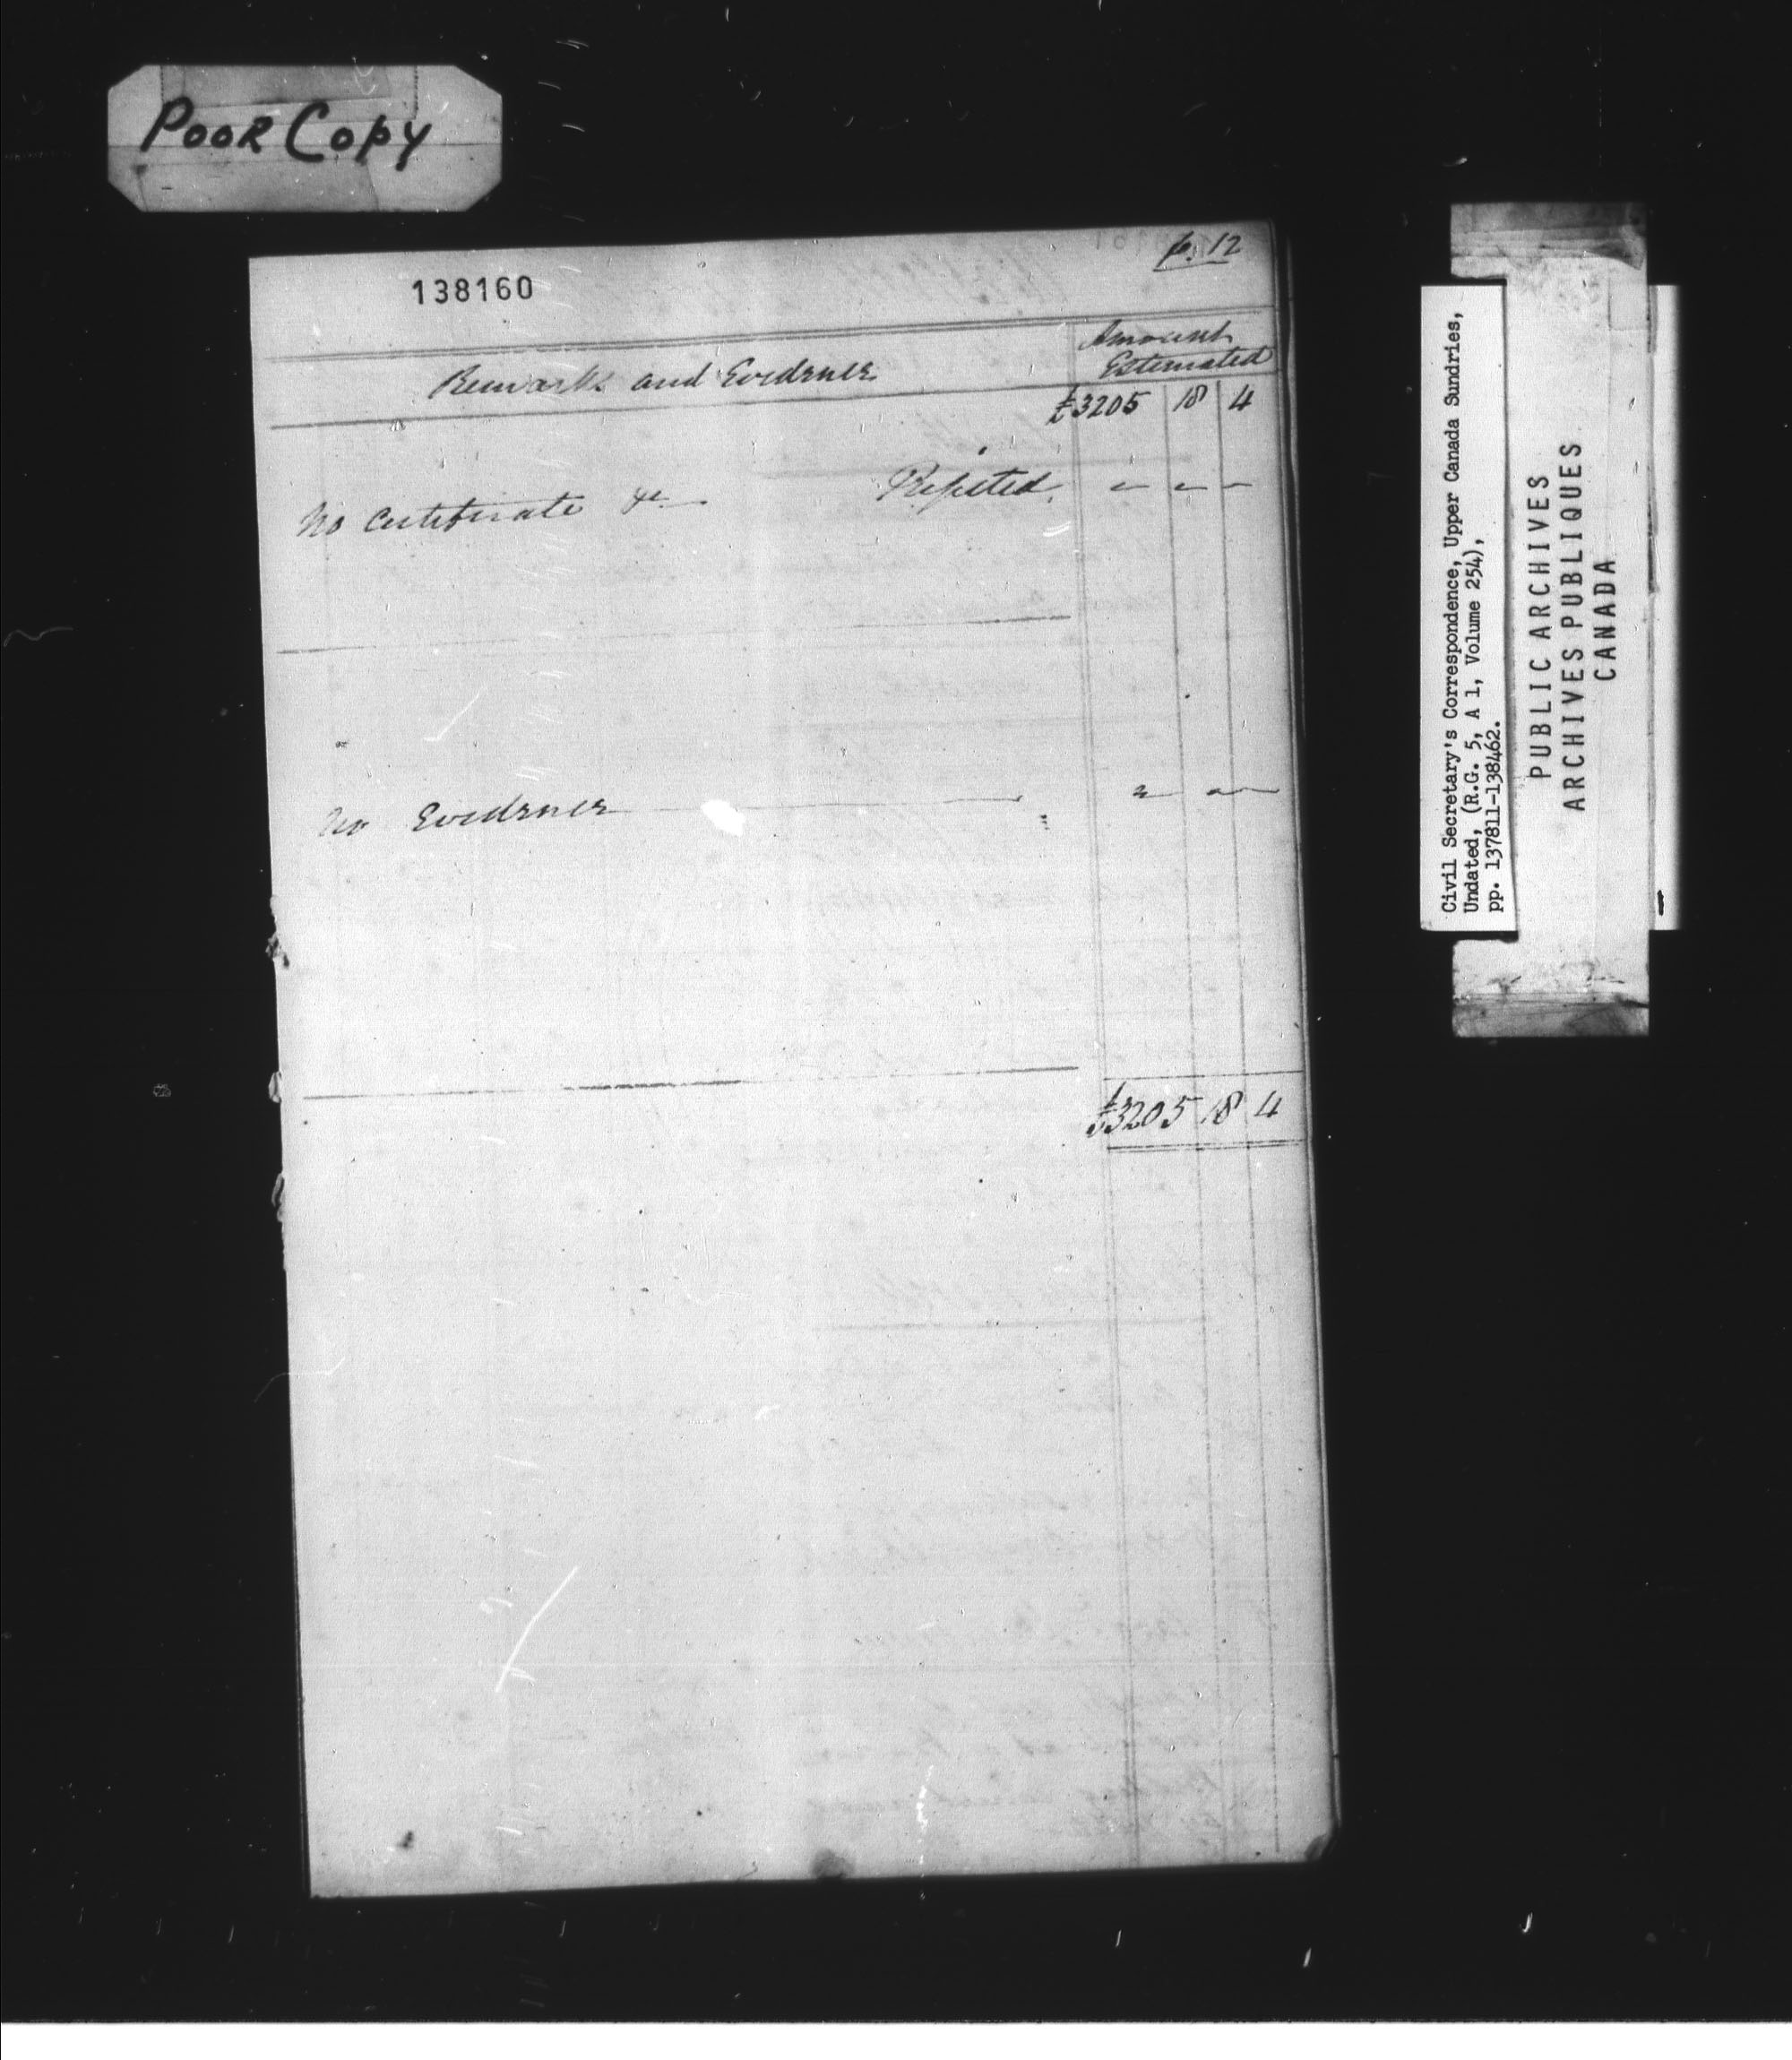 Poor Copy
p. 12
138160
Remarks and Evidence
Amount
Estimated
£3205 18 4
No Certificate &c — Rejected. – – –
No Evidence — " — –
£3205 18 4
Civil Secretary's Correspondence, Upper Canada Sundries,
Undated, (R.G. 5, A 1, Volume 254),
pp. 137811-138462.
PUBLIC ARCHIVES
ARCHIVES PUBLIQUES
CANADA